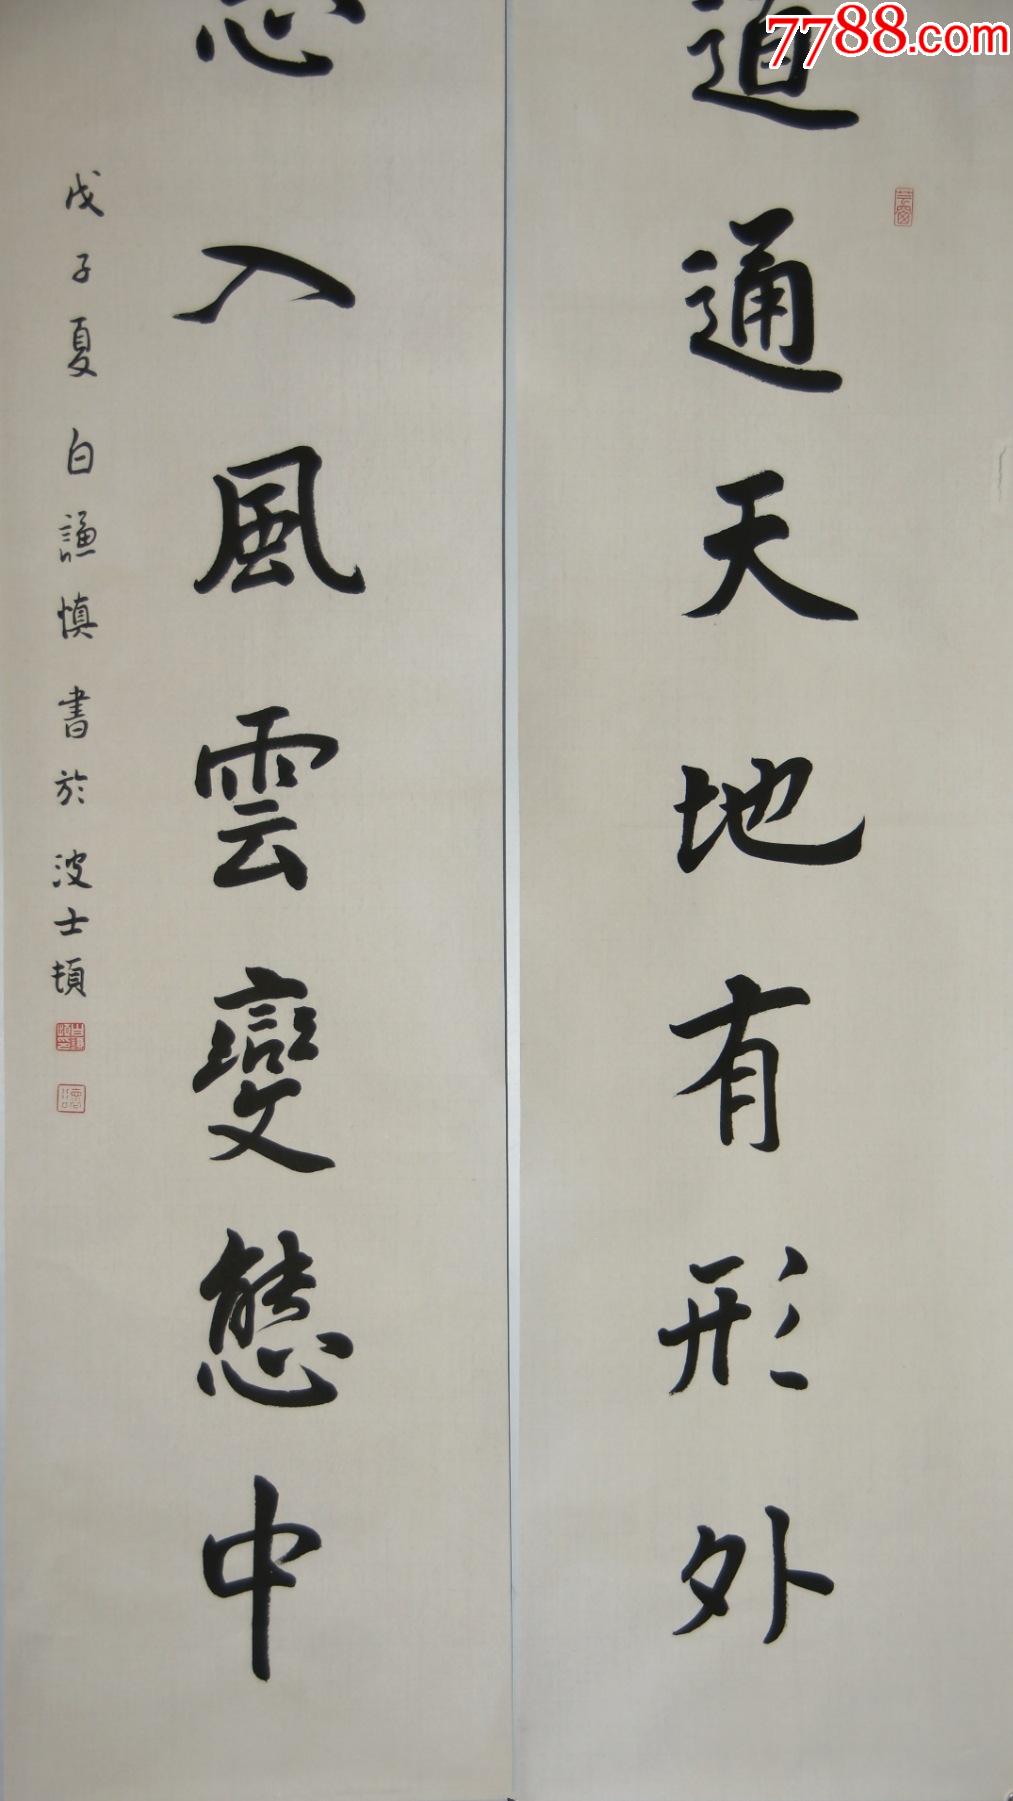 7788.com
道通天地有形外
思入風雲變態中
戊子夏白謙慎書於波士頓